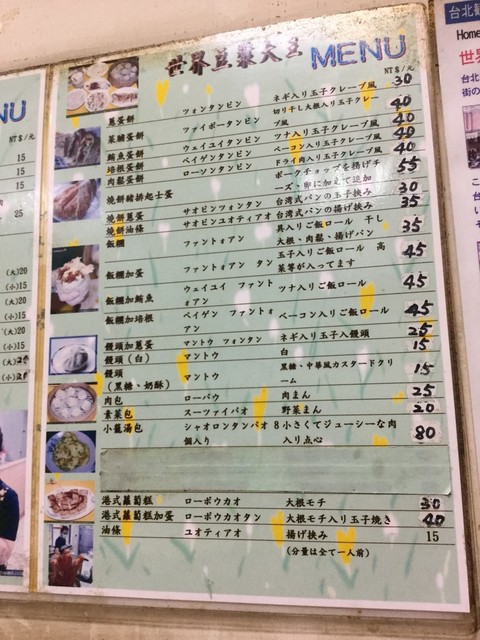 世界豆漿大王 MENU
NT$/元
蔥蛋餅 ツォンタンピン ネギ入り玉子クレープ風 30
菜脯蛋餅 ファイポータンピン 切り干し大根入り玉子クレープ風 40
鮪魚蛋餅 ウェイユイタンピン ツナ入り玉子クレープ風 40
培根蛋餅 ベイゲンタンピン ベーコン入り玉子クレープ風 40
肉鬆蛋餅 ローソンタンピン ドライ肉入り玉子クレープ風 40
燒餅豬排起士蛋 ポークチョップを揚げチーズ、卵に加えて追加 55
燒餅蔥蛋 サオピンツォタン 台湾式パンの玉子挟み 30
燒餅油條 サオピンユオティアオ 台湾式パンの揚げ挟み 35
飯糰 ファントォアン 具入りご飯ロール 干し大根・肉鬆・揚げパン 35
飯糰加蛋 ファントォアン タン 玉子入りご飯ロール 高菜等が入ってます 45
飯糰加鮪魚 ウェイユイ ファントォアン ツナ入りご飯ロール 45
飯糰加培根 ベイゲン ファントォアン ベーコン入りご飯ロール 45
饅頭加蔥蛋 マントウ ツォンタン ネギ入り玉子入饅頭 25
饅頭(白) マントウ 白 15
饅頭(黒糖、奶酥) マントウ 黒糖、中華風カスタードクリーム 15
肉包 ローバウ 肉まん 25
素菜包 スーツァイパオ 野菜まん 20
小籠湯包 シャオロンタンパオ 8個入り 小さくてジューシーな肉入り点心 80
港式蘿蔔糕 ローボウカオ 大根モチ 30
港式蘿蔔糕加蛋 ローボウカオタン 大根モチ入り玉子焼き 40
油條 ユオティアオ 揚げ挟み 15
(分量は全て一人前)
NU
NT$/元
15
15
15
25
(大)20
(小)15
(大)20
(小)15
(大)
(小)15
Home
世界
台北
街の